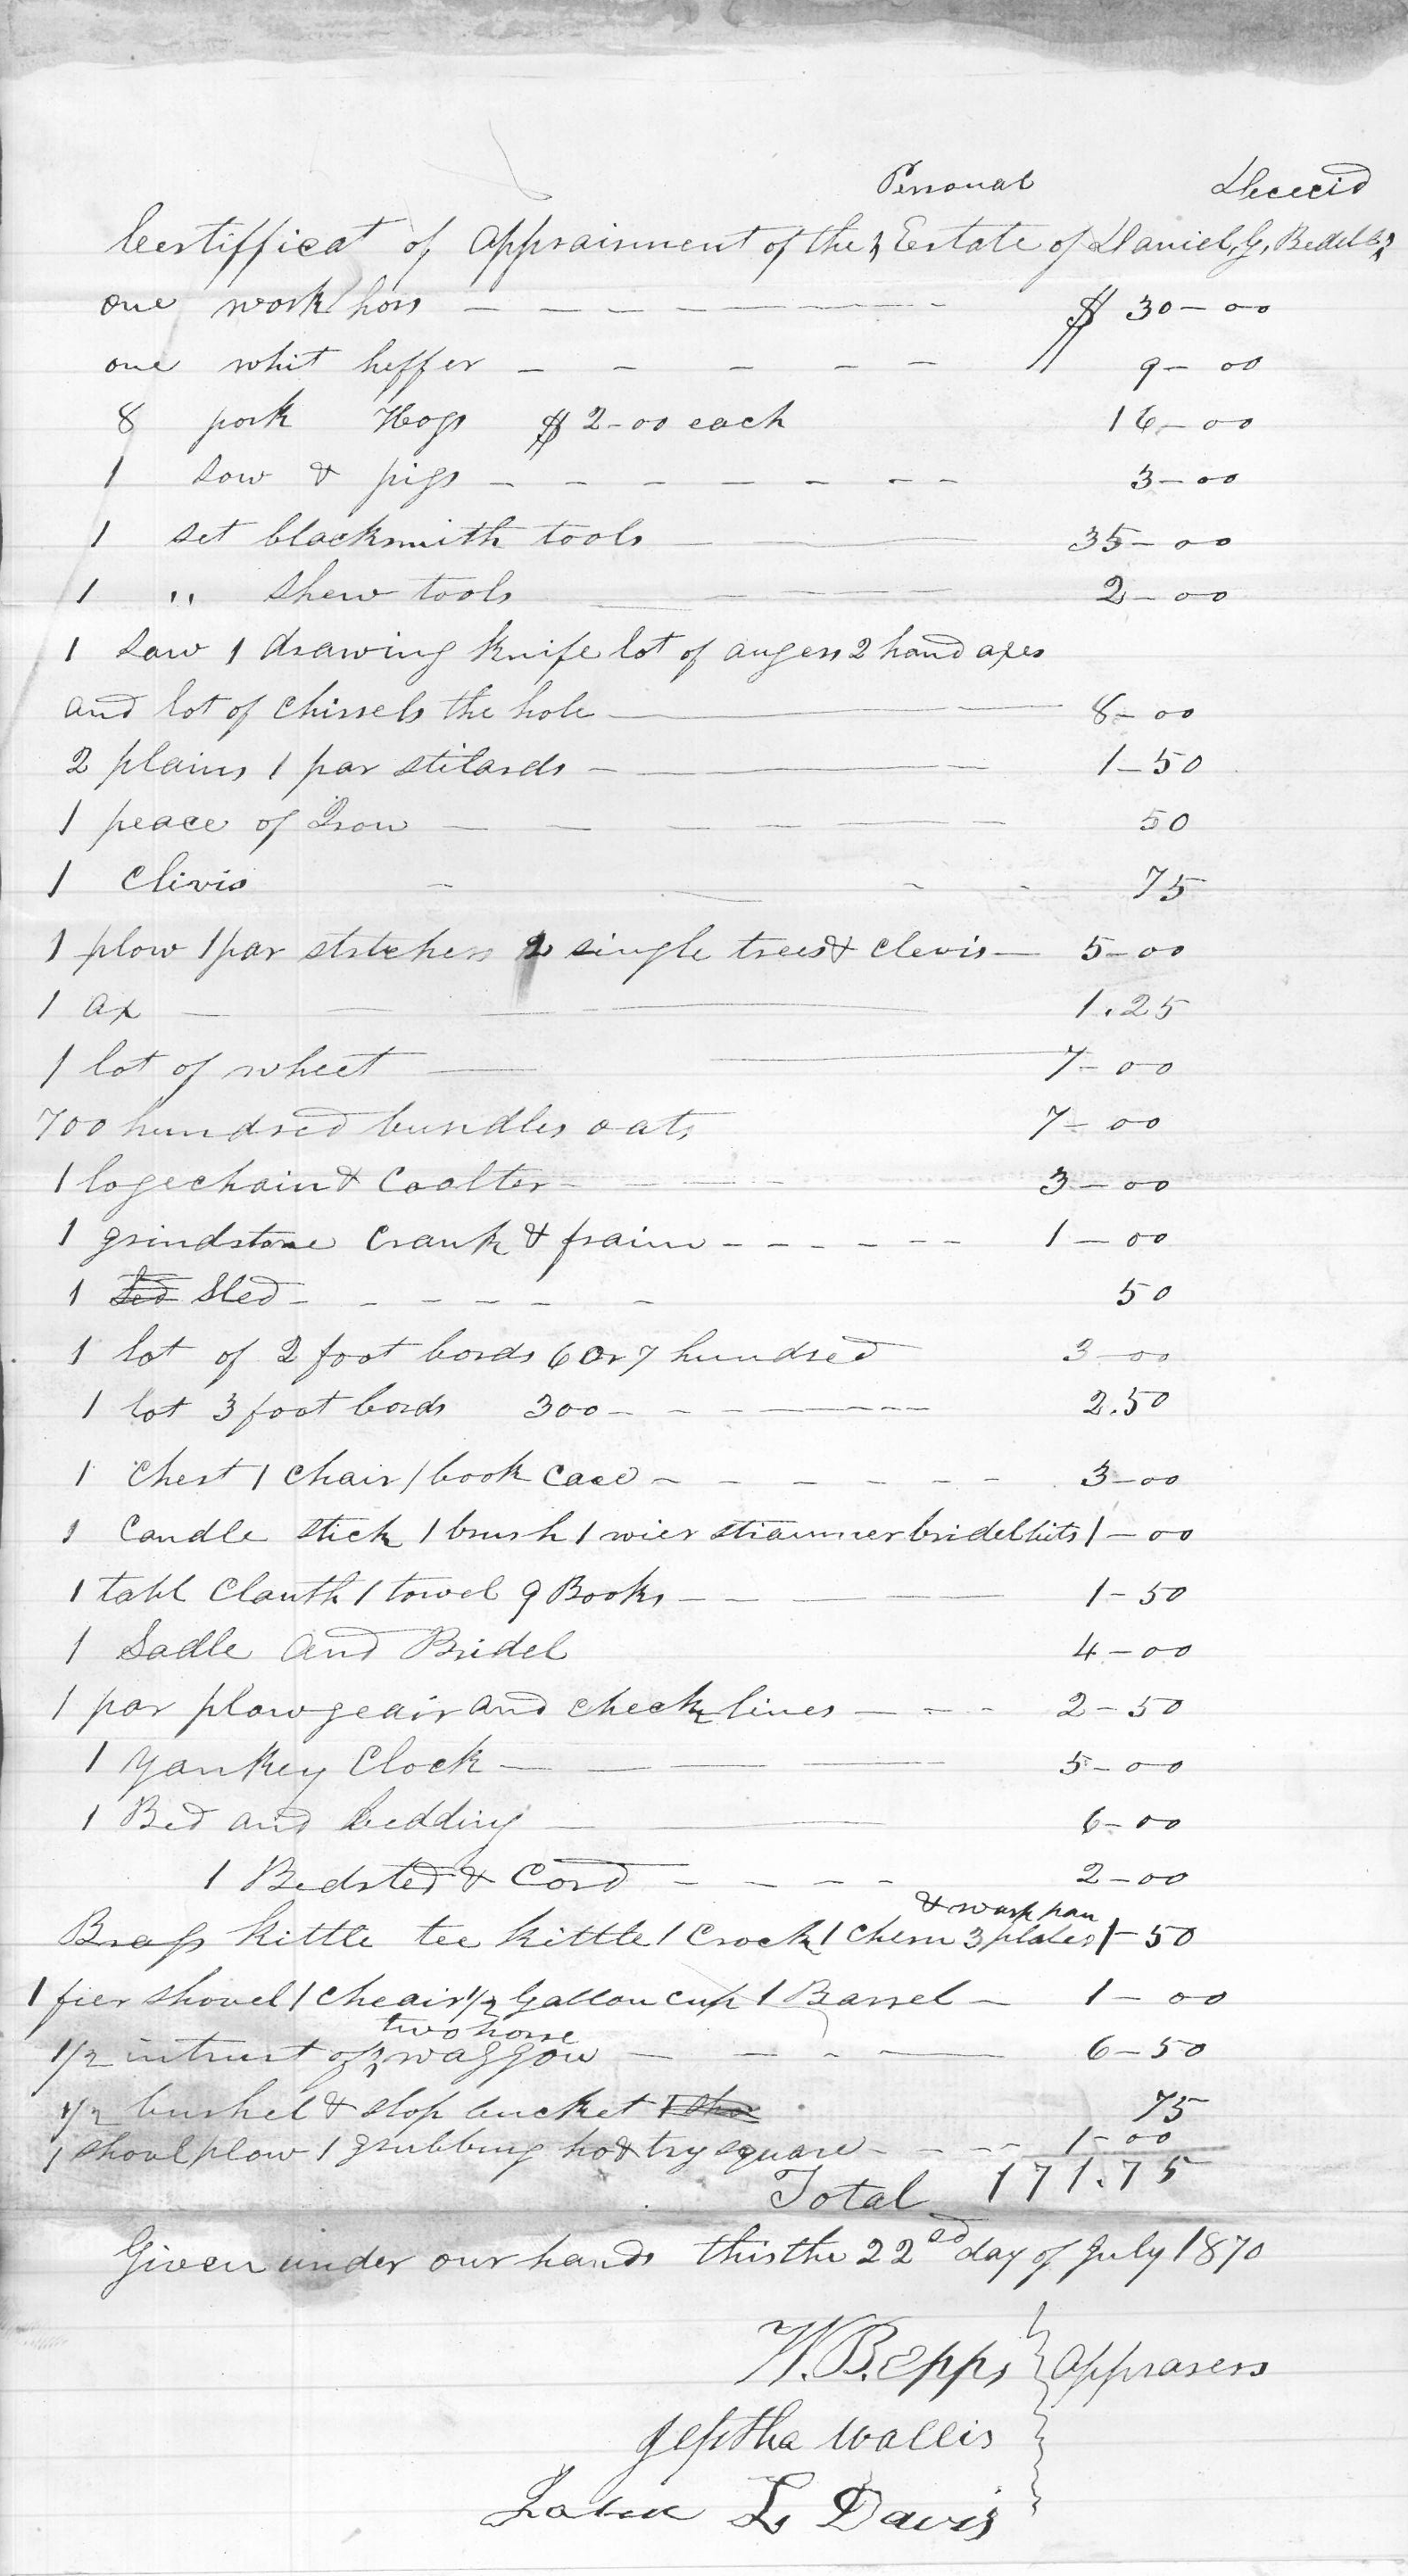 Personal Dececid
Certifficat of Appraisement of the ^ Estate of Daniel, G, Bedel ^
one work hors $ 30-00
one whit heffer 9-00
8 pork Hogs $2-00 each 16-00
1 sow & pigs 3-00
1 set blacksmith tools 35-00
1 " shew tools 2-00
1 saw 1 drawing knife lot of augers 2 hand axes
and lot of chissels the hole 8-00
2 plains 1 par stilards 1-50
1 peace of Iron 50
1 Clivis 75
1 plow 1 par stretchers 2 single trees & clevis 5-00
1 ax 1.25
1 lot of wheet 7-00
700 hundred bundles oats 7-00
1 loge chain & Coolter 3-00
1 grindstone Crank & fraim 1-00
1 Sled 50
1 lot of 2 foot bords 6 Or 7 hundred 3-00
1 lot 3 foot bords 300 2.50
1 Chest 1 Chair 1 book Case 3-00
1 Candle stick 1 brush 1 wier strainner bridel bits 1-00
1 tabl Clauth 1 towel 9 Books 1-50
1 Sadle and Bridel 4-00
1 par plow geair and check lines 2-50
1 Yankey Clock 5-00
1 Bed and bedding 6-00
1 Bedsted & Cord 2-00
& wash pan
Brass kittle tee kittle 1 Crock 1 Chern 3 plates 1-50
1 fier shovel 1 cheair 1/2 Gallon cup 1 Barrel 1-00
two horse
1/2 intrust of ^ waggon 6-50
1/2 bushel & slop bucket 1 sho 75
1 shoul plow 1 grubbing ho & try square 1-00
Total 171.75
Given under our hands this the 22nd day of July 1870
W. B. Epps } Apprasers
Jeptha Wallis
L Davis